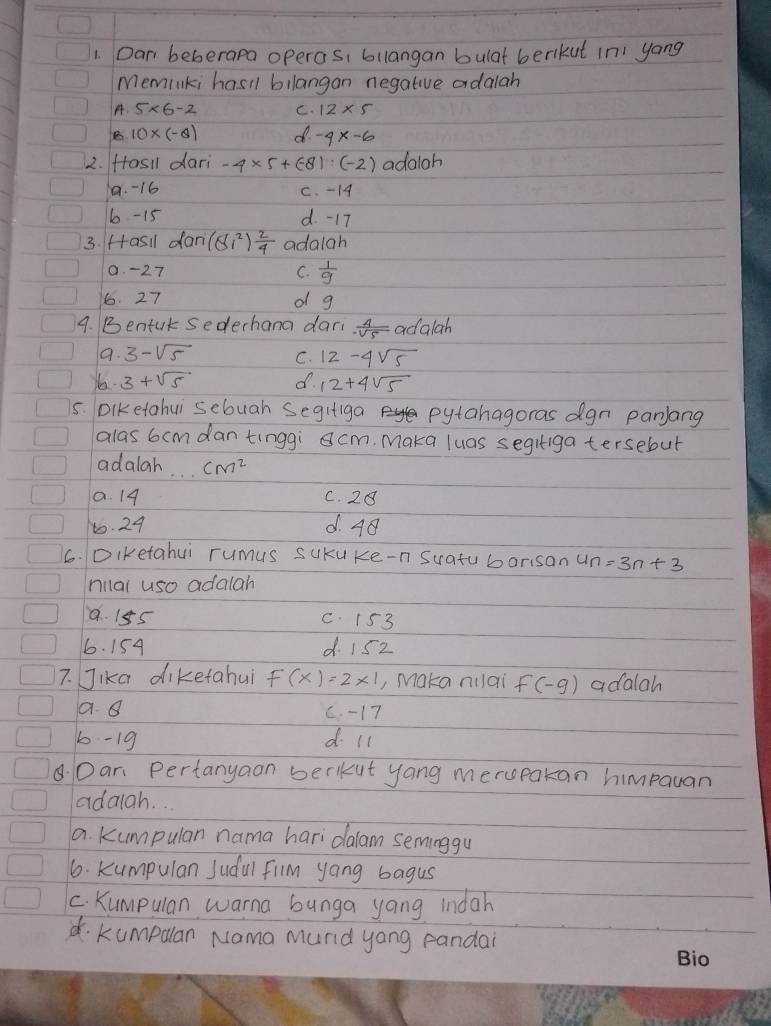 1. Dari beberapa operasi bilangan bulat berikut ini yang
Memiliki hasil bilangan negative adalah
A. 5×6-2 C. 12×5
B. 10×(-8) d. -9×-6
2. Hasil dari -4×5+(-8):(-2) adalah
a. -16 c. -14
b. -15 d. -17
3. Hasil dari (81²) 2/4 adalah
a. -27 c. 1/9
b. 27 d 9
4. Bentuk sederhana dari 4/√5 adalah
a. 3-√5 c. 12-4√5
b. 3+√5 d. 12+4√5
5. Diketahui sebuah segitiga pytahagoras dgn panjang
alas 6cm dan tinggi 8cm. Maka luas segitiga tersebut
adalah ... cm²
a. 14 c. 28
b. 24 d. 48
6. Diketahui rumus suku ke-n suatu barisan un=3n+3
nilai u50 adalah
a. 155 c. 153
b. 154 d. 152
7. Jika diketahui F(x)=2×1, Maka nilai F(-9) adalah
a. 8 c. -17
b. -19 d. 11
8. Dari Pertanyaan berikut yang merupakan himpauan
adalah...
a. Kumpulan nama hari dalam seminggu
b. Kumpulan Judul Film yang bagus
c. Kumpulan warna bunga yang indah
d. Kumpulan Nama Murid yang pandai
Bio